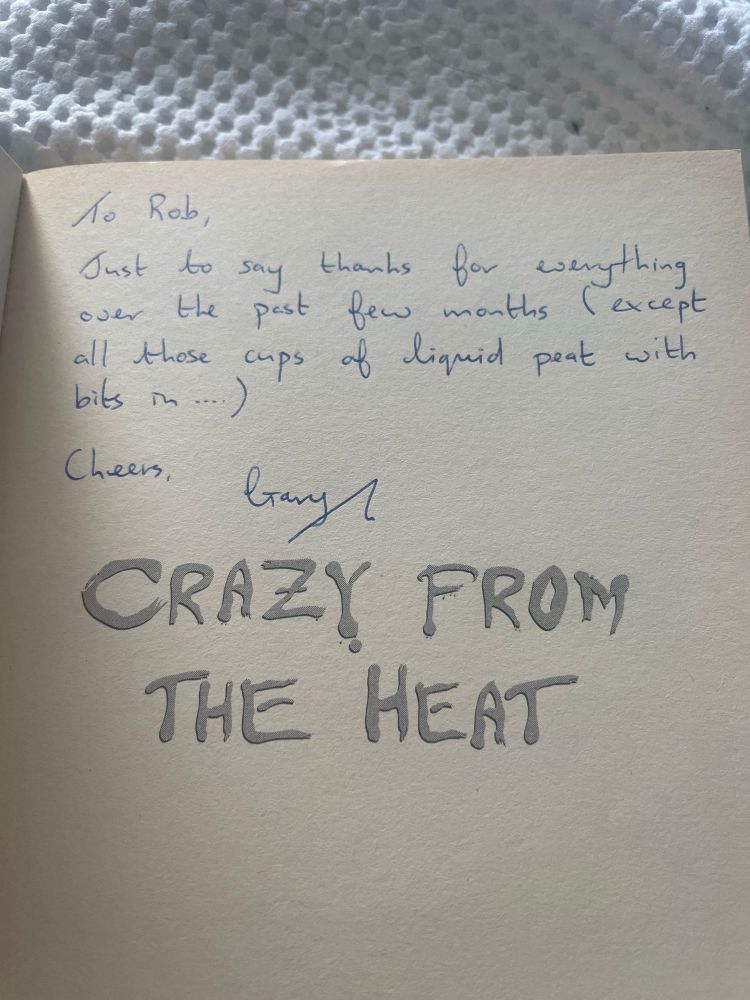 To Rob,
Just to say thanks for everything
over the past few months (except
all those cups of liquid peat with
bits in ....)
Cheers,
Gary
CRAZY FROM
THE HEAT